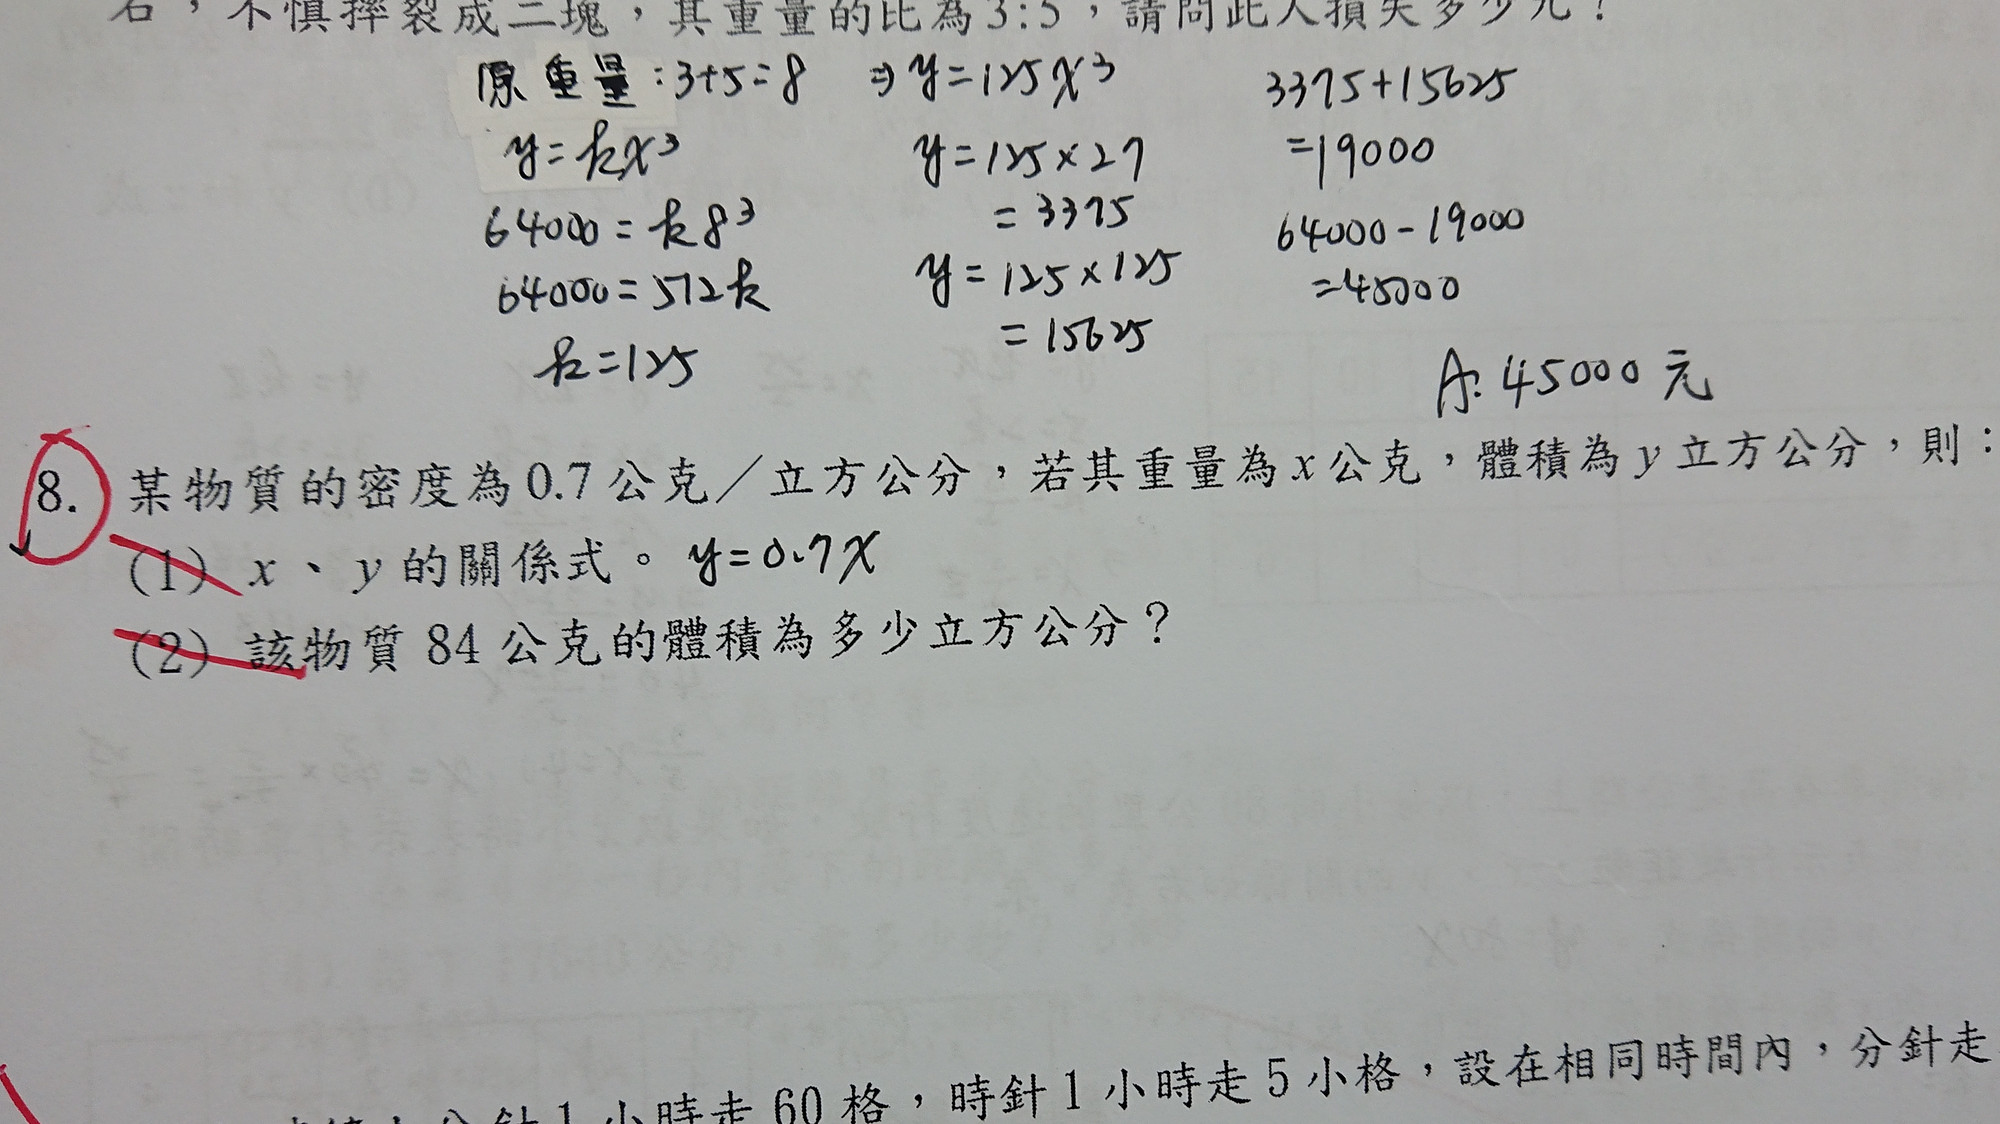 不慎摔裂成二塊，其重量的比為3:5，請問此人損失多少元？
原重量：3+5=8 ⇒ y=125x³ 3375+15625
y=kx³ y=125×27 =19000
64000=k8³ =3375 64000-19000
64000=512k y=125×125 =45000
k=125 =15625
A：45000元
8. 某物質的密度為0.7公克／立方公分，若其重量為x公克，體積為y立方公分，則：
(1) x、y的關係式。 y=0.7x
(2) 該物質 84 公克的體積為多少立方公分？
分針1小時走60格，時針1小時走5小格，設在相同時間內，分針走